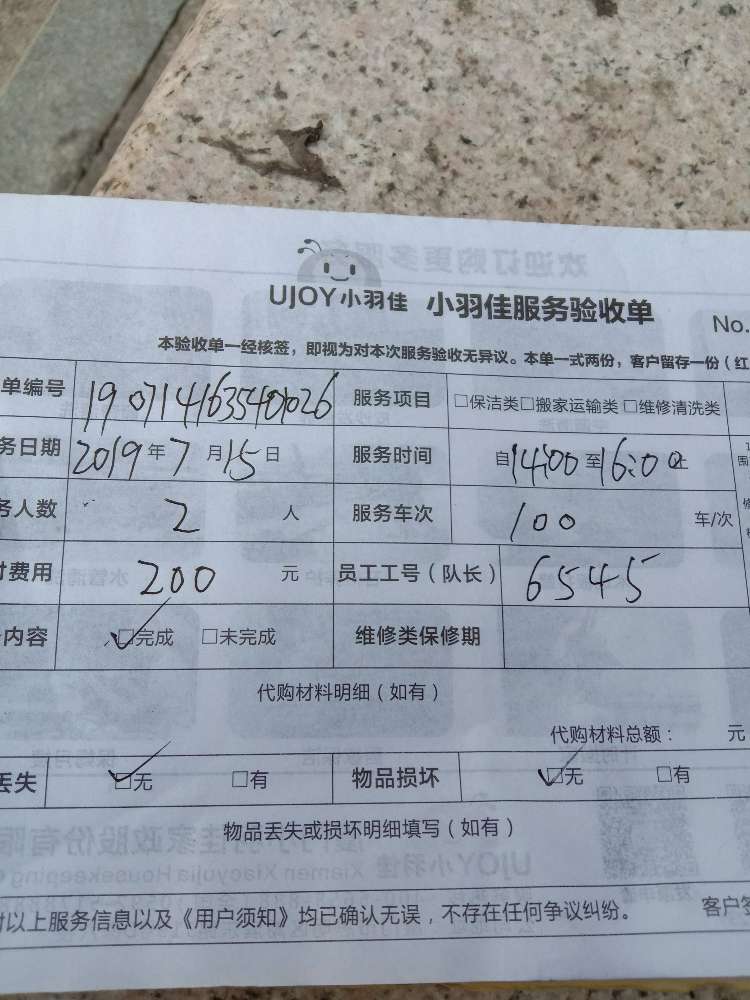 UJOY小羽佳 小羽佳服务验收单
No.
本验收单一经核签，即视为对本次服务验收无异议。本单一式两份，客户留存一份（红
单编号 190714163540026 服务项目 □保洁类□搬家运输类 □维修清洗类
务日期 2019年7月15日 服务时间 自14:00至16:00止
务人数 2 人 服务车次 100 车/次
付费用 200 元 员工工号（队长） 6545
内容 □完成 □未完成 维修类保修期
代购材料明细（如有）
代购材料总额： 元
丢失 □无 □有 物品损坏 □无 □有
物品丢失或损坏明细填写（如有）
对以上服务信息以及《用户须知》均已确认无误，不存在任何争议纠纷。 客户签